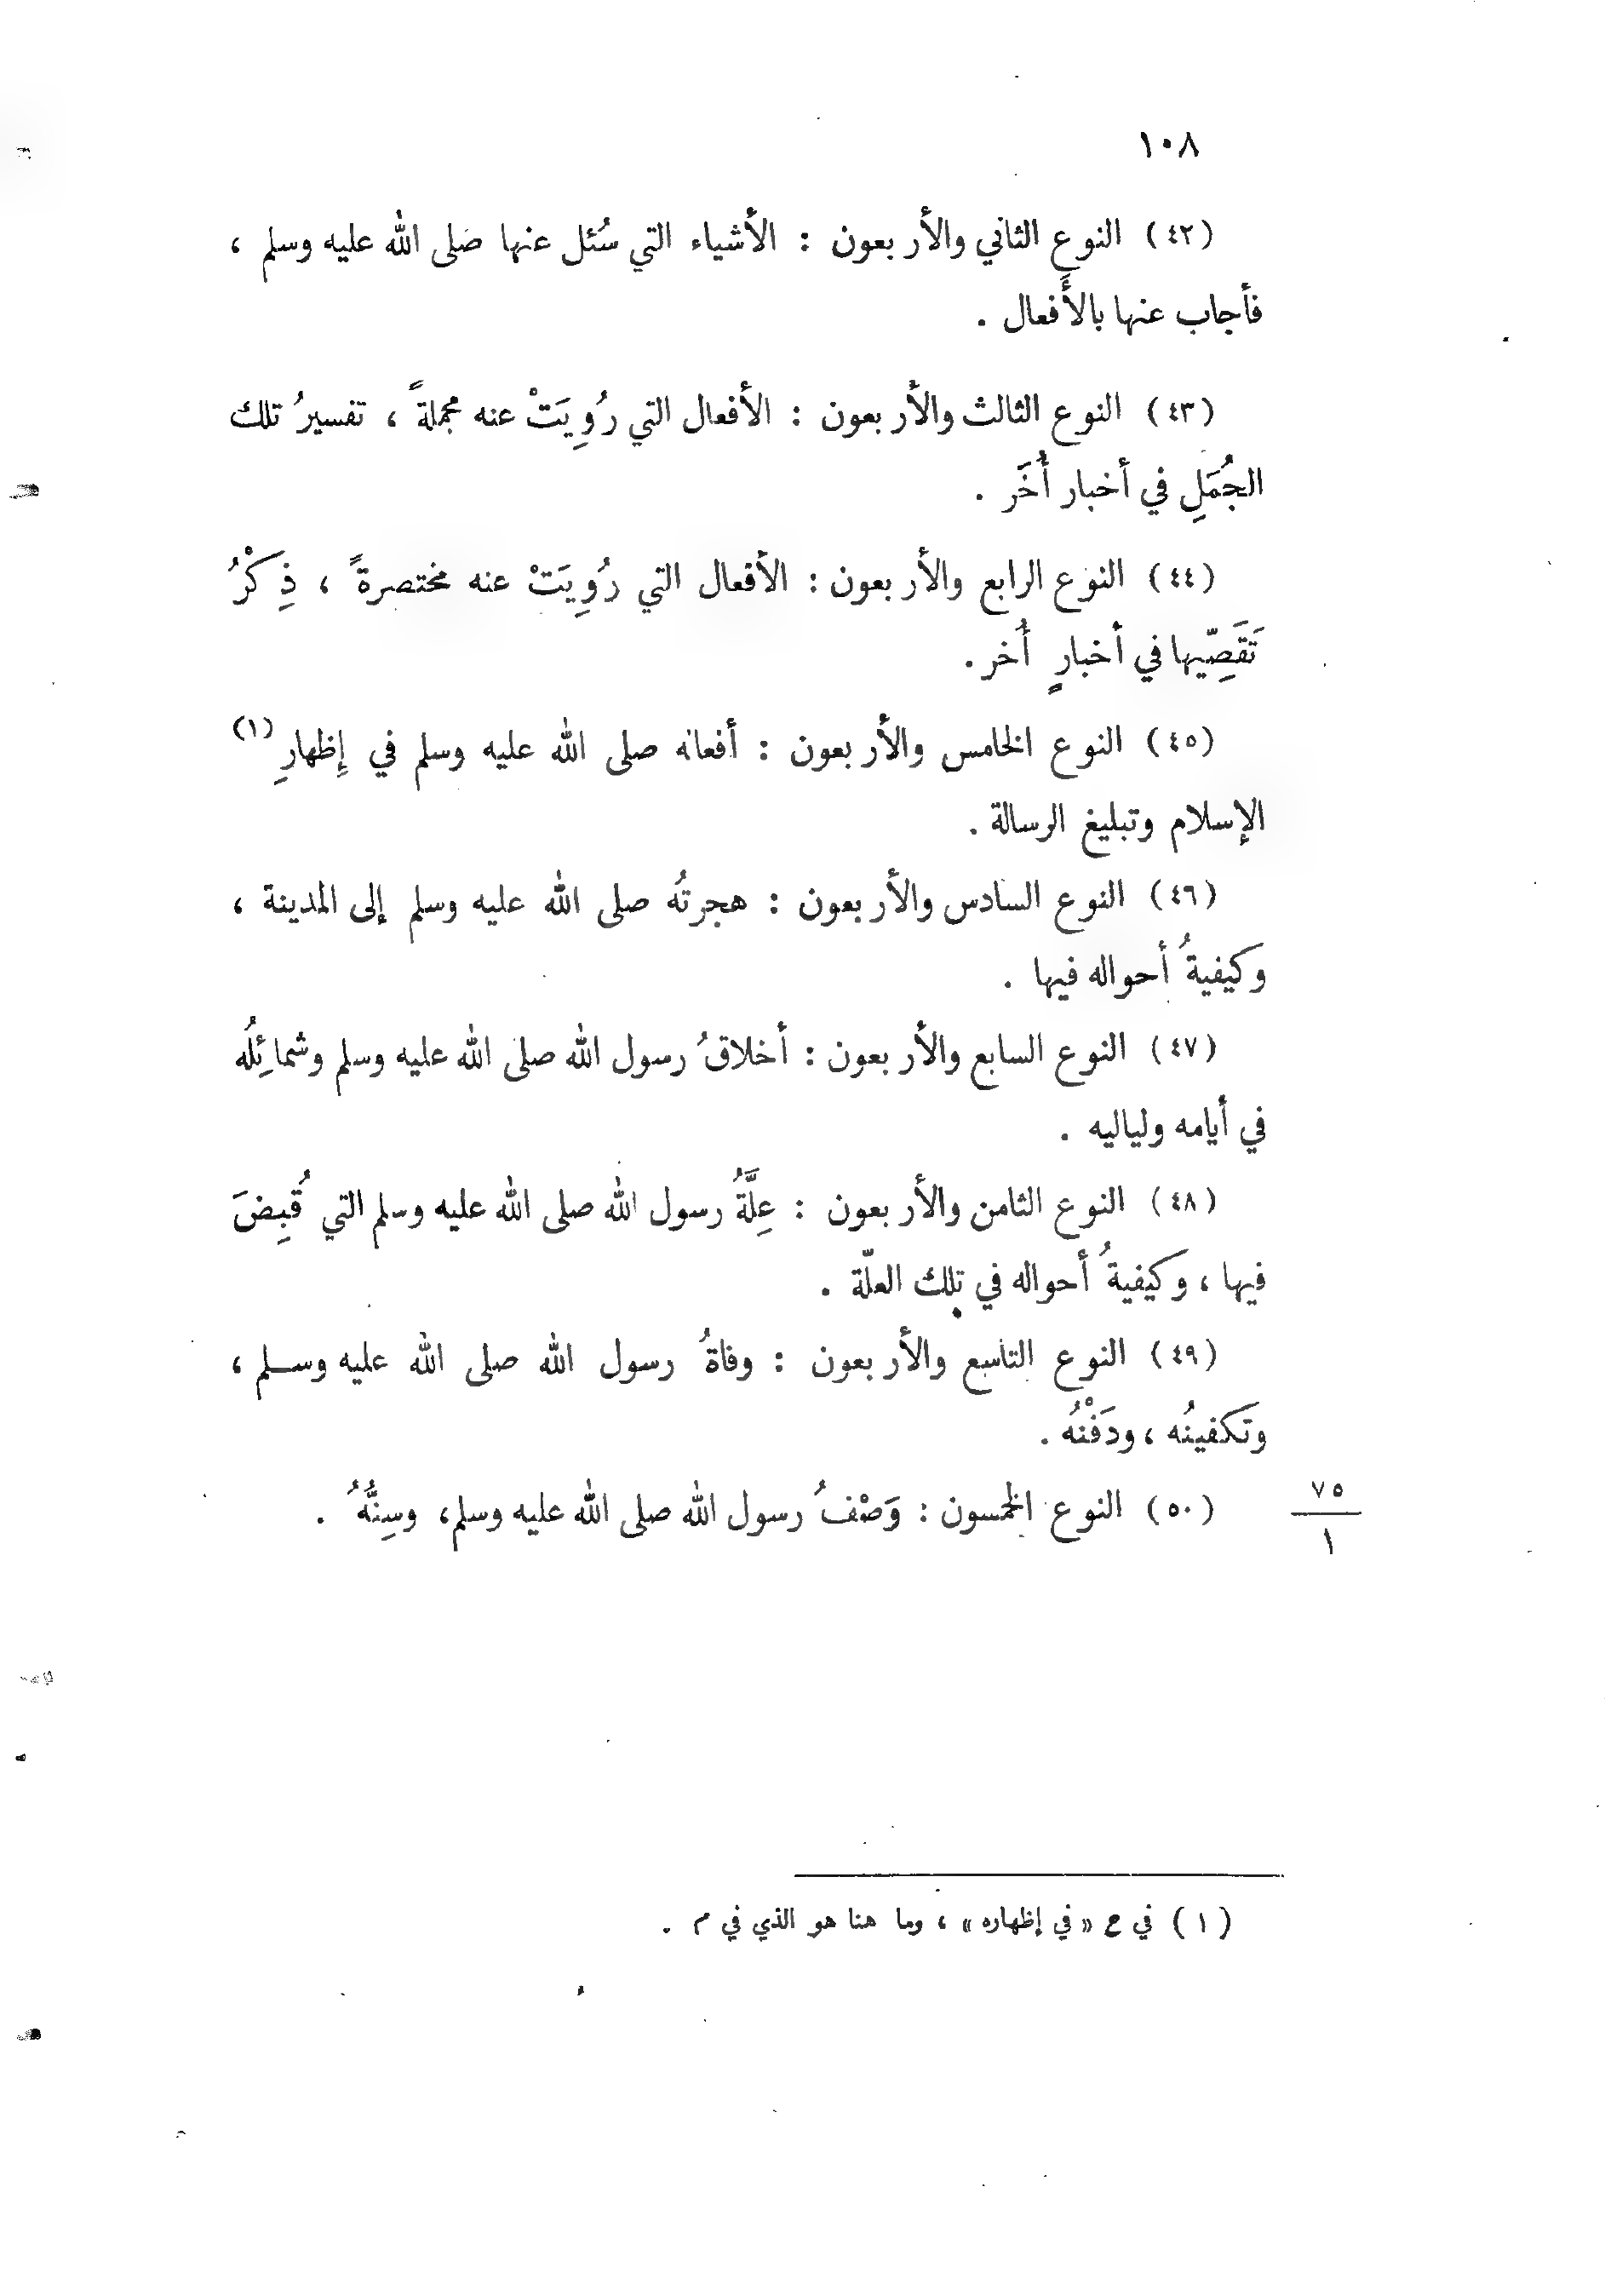 ١٠٨
(٤٢) النوع الثاني والأربعون : الأشياء التي سُئل عنها صلى الله عليه وسلم ،
فأجاب عنها بالأَفعال .
(٤٣) النوع الثالث والأربعون : الأفعال التي رُوِيَتْ عنه مجملةً ، تفسيرُ تلك
الجُمَلِ في أخبار أُخَر .
(٤٤) النوع الرابع والأربعون : الأفعال التي رُوِيَتْ عنه مختصرةً ، ذِكْرُ
تَقَصِّيها في أخبارٍ أُخر .
(٤٥) النوع الخامس والأربعون : أفعاله صلى الله عليه وسلم في إِظهارِ (١)
الإسلام وتبليغ الرسالة .
(٤٦) النوع السادس والأربعون : هجرتُه صلى الله عليه وسلم إلى المدينة ،
وكيفيةُ أحواله فيها .
(٤٧) النوع السابع والأربعون : أخلاقُ رسول الله صلى الله عليه وسلم وشمائِلُه
في أيامه ولياليه .
(٤٨) النوع الثامن والأربعون : عِلَّةُ رسول الله صلى الله عليه وسلم التي قُبِضَ
فيها ، وكيفيةُ أحواله في تلك العلّة .
(٤٩) النوع التاسع والأربعون : وفاةُ رسول الله صلى الله عليه وسلم ،
وتَكفينُه ، ودَفْنُه .
(٥٠) النوع الخمسون : وَصْفُ رسول الله صلى الله عليه وسلم ، وسِنُّهُ .
٧٥
١
(١) في ح « في إظهاره » ، وما هنا هو الذي في م .